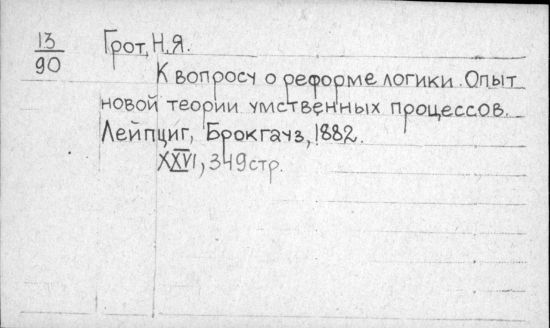 13
90
Грот, Н.Я.
К вопросу о реформе логики. Опыт
новой теории умственных процессов.
Лейпциг, Брокгауз, 1882.
XXVI, 349 стр.